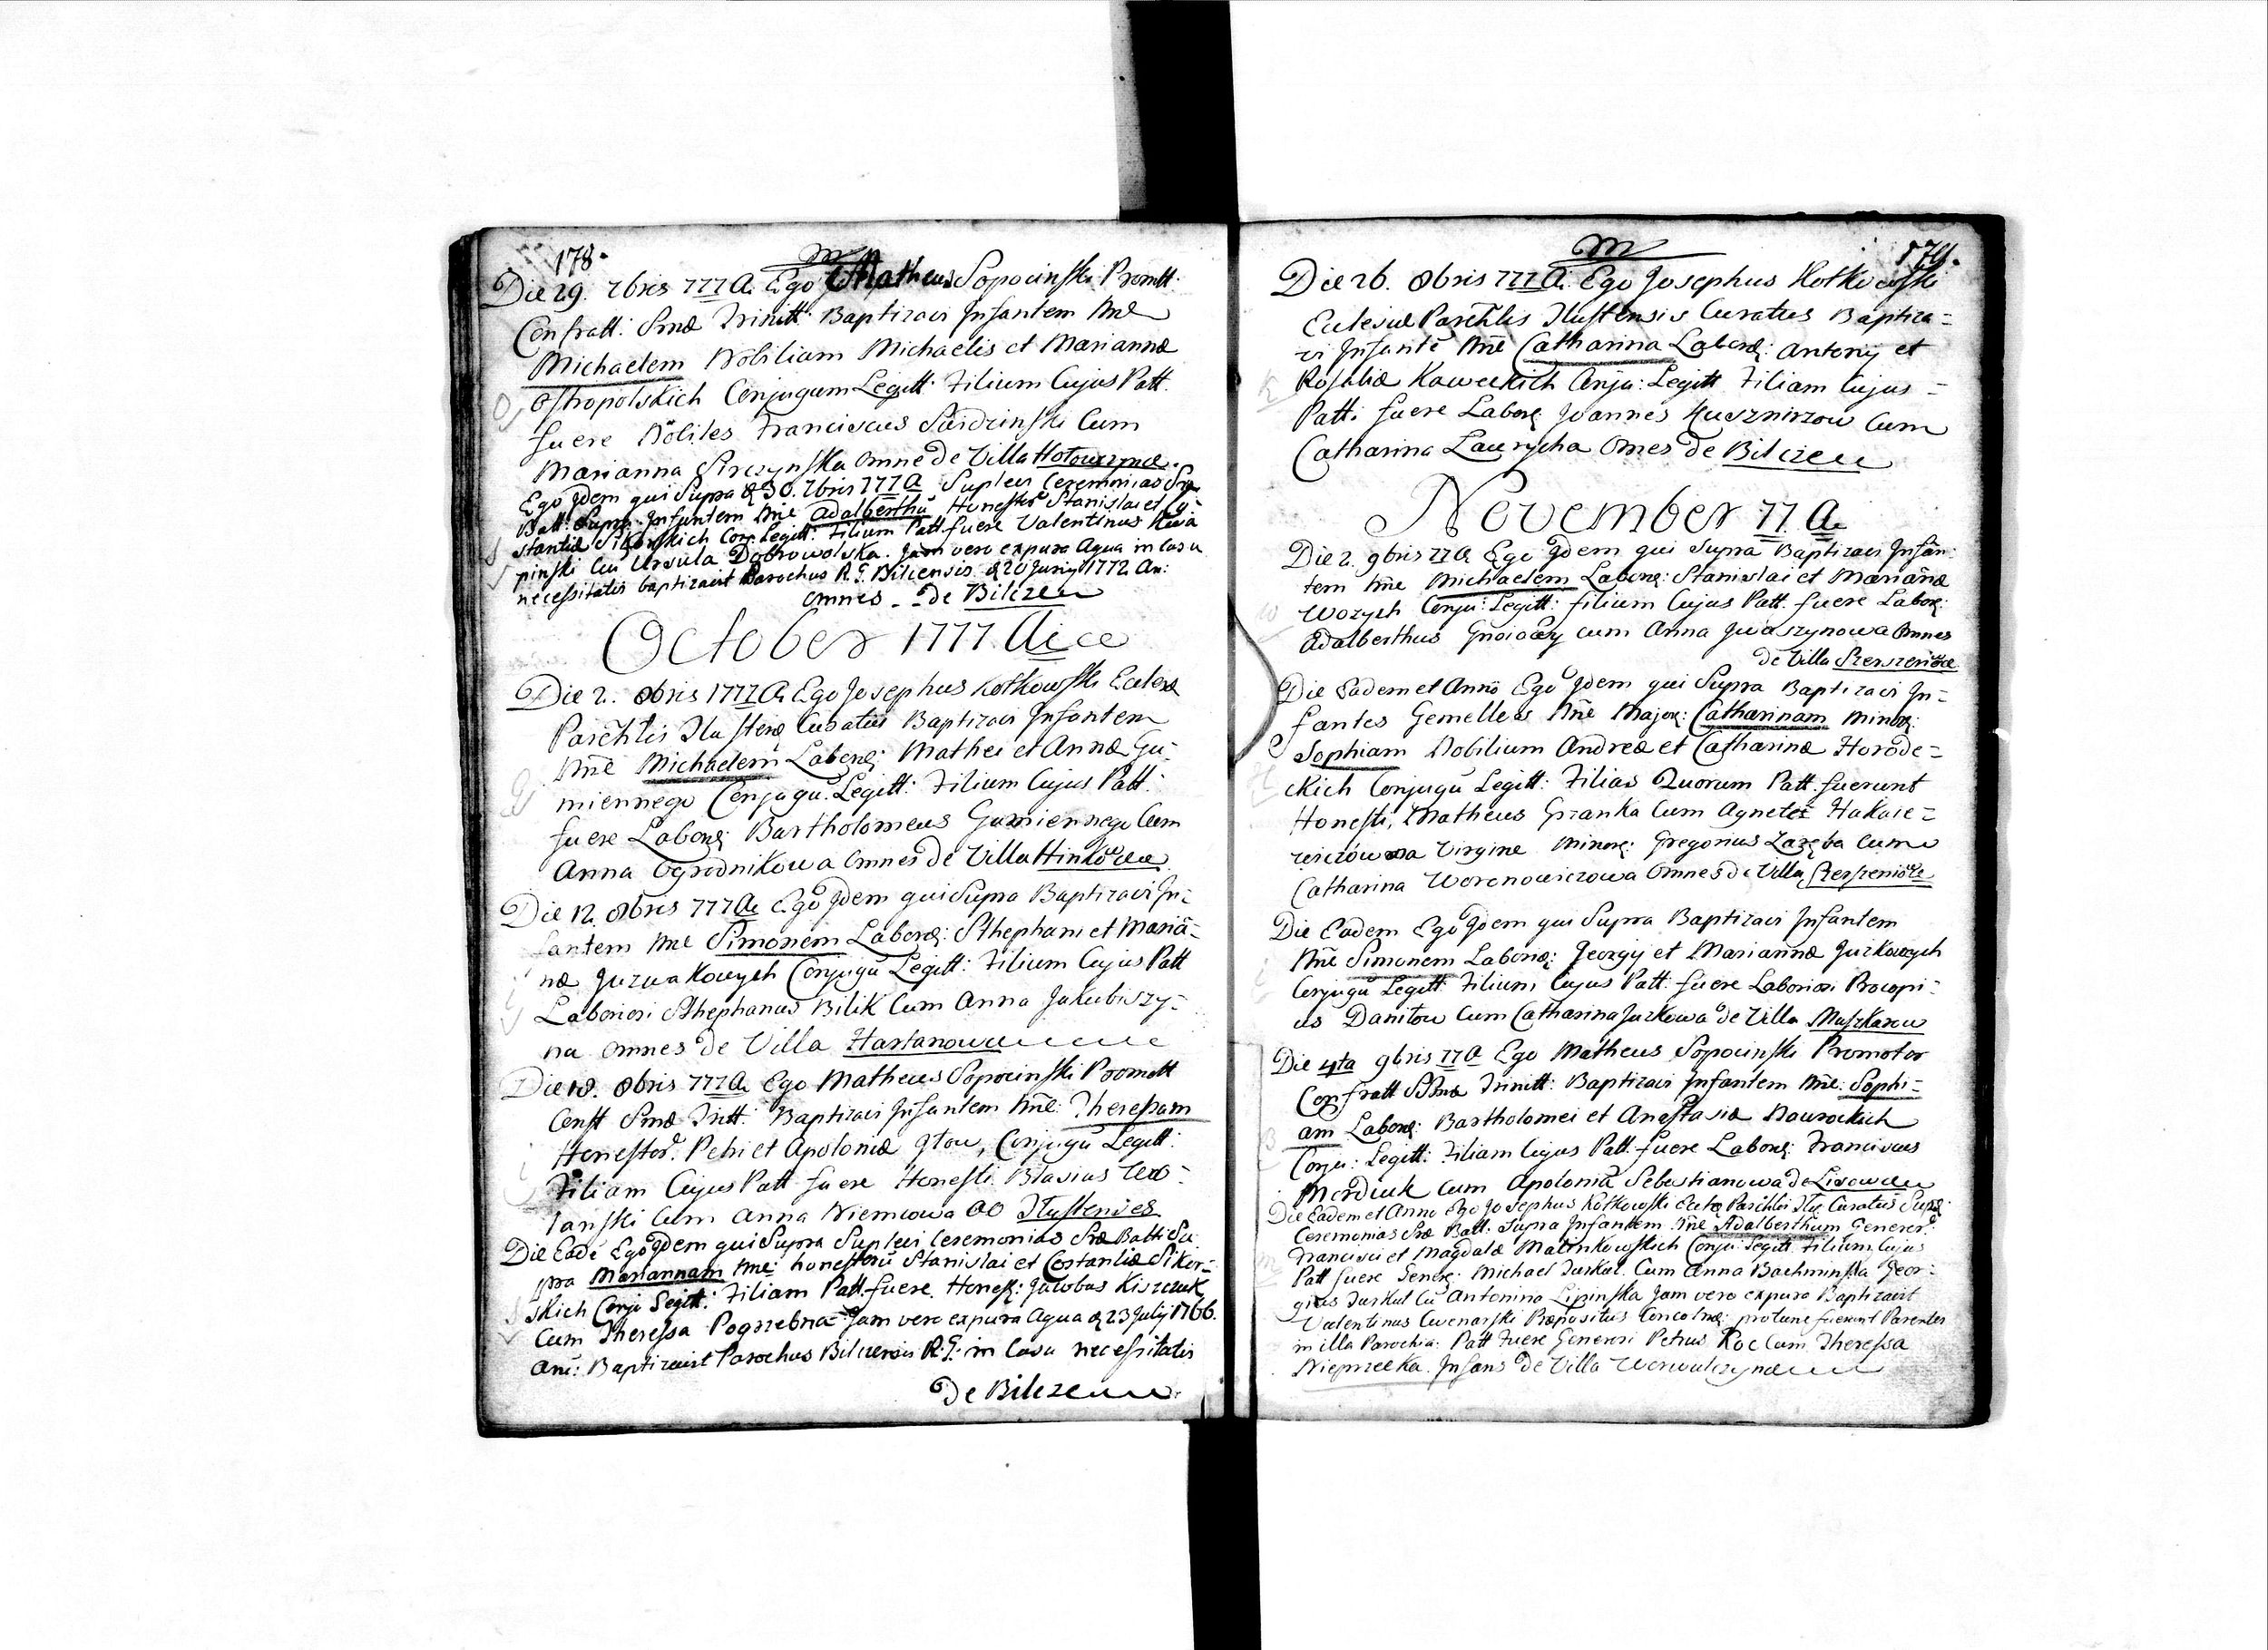 178.
M
Die 29. 7bris 777 A. Ego Matheus Sopocinski Promtt:
Confratt: Smæ Trinitt: Baptizavi Infantem Nne
Michaelem Nobilium Michaelis et Mariannæ
Ostropolskich Conjugum Legitt: Filium Cujus Patt.
fuere Nobiles Franciscus Cum
Marianna Omne de Villa
Ego Idem qui Supra d 30. 7bris 777 A Suplevi Ceremonias Sræ
Batt: Supra Infantem Nne Adalberthũ Honestor Stanislai et Co-
stantiæ Sikorskich Conj: Legitt: Filium Patt fuere Valentinus
pinski Cũ Ursula Dobrowolska. Jam vero expura Aqua in Casu
necessitatis baptizavit Parochus R.G. Bilcensis d 20 Junij 1772 An:
omnes - de Bilcze
October 1777 Ai
Die 2. 8bris 1777 A. Ego Josephus Kotkowski Eccleæ
Parchlis Ilusten Curatus Baptizavi Infantem
Nne Michaelem Labor: Mathei et Annæ Gu-
miennego Conjugũ Legitt: Filium Cujus Patt:
fuere Labor: Bartholomeus Gumiennego Cum
Anna Ogrodnikowa Omnes de Villa Hinkowce
Die 12. 8bris 777 A. Ego Idem qui Supra Baptizavi In-
fantem Nne Simonem Labor: Sthephani et Mariã-
næ Juzwakowych Conjugũ Legitt: Filium Cujus Patt
Laboriosi Sthephanus Bilik Cum Anna Jakubiszy-
na Omnes de Villa Hartanowce
Die 18. 8bris 777 A. Ego Matheus Sopocinski Promott
Confr Smæ Tritt: Baptizavi Infantem Nne: Theressam
Honestor. Petri et Apoloniæ Itow, Conjugũ Legitt:
Filiam Cujus Patt fuere Honesti Blasius
lanski Cum Anna Niemcowa OO Ilustenses
Die Eadẽ Ego Idem qui Supra Suplevi Ceremonias Sræ Batti Su
pra Mariannam Nne: honestorũ Stanislai et Costantiæ Sikor-
skich Conju Legitt: Filiam Patt. fuere. Honest: Jacobus Kiszczuk
Cum Theressa Pogrzebna Jam vero expura Aqua d 23 July 1766.
Anũ: Baptizavit Parochus Bilcensis R.G. in Casu necessitatis
de Bilcze
M
179.
Die 26. 8bris 777 A. Ego Josephus Kotkowski
Eclesiæ Parchlis Ilustensis Curatus Baptiza-
vi Infantẽ Nne Catharina Labor: Antonij et
Rosaliæ Kaweckich Conju: Legitt Filiam Cujus -
Patt: fuere Labor Joannes Kusznirzow Cum
Catharina Laurycha Omes de Bilcze
November 77 A.
Die 2. 9bris 77 A Ego Idem qui Supra Baptizavi Infan:
tem Nne Michaelem Labor: Stanislai et Mariãnæ
Wozych Conju: Legitt: filium Cujus Patt. fuere Labor:
Adalberthus Gnoiowy cum Anna Iwaszynowa Omnes
de Villa Szerszeniowce
Die Eadem et Anno Ego Idem qui Supra Baptizavi In-
fantes Gemelles Nne Major: Catharinam minor:
Sophiam Nobilium Andreæ et Catharinæ Horode-
ckich Conjugũ Legitt: Filias Quorum Patt. fuerunt
Honesti, Matheus Grzanka Cum Agnete Hakaie-
wiczowna Virgine Minor: Gregorius Lazęba Cum
Catharina Woronowiczowa Omnes de Villa Szerszeniowce
Die Eadem Ego Idem qui Supra Baptizavi Infantem
Nne Simonem Labor: Georgij et Mariannæ Jurkowych
Conjugũ Legitt Filium Cujus Patt: fuere Laboriosi Procopi-
us Daniłow Cum Catharina Jurkowa de Villa Muszkarow
Die 4ta 9bris 77 A Ego Matheus Sopocinski Promotor
Confratt SSmæ Trinitt: Baptizavi Infantem Nne: Sophi-
am Labor: Bartholomei et Anestasiæ Nawrockich
Conju: Legitt: Filiam Cujus Patt fuere Labor: Franciscus
Merdiuk Cum Apolonia Sebestianowa de Lisowce
Die Eadem et Anno Ego Josephus Kotkowski Eccle Parchlis Ilus Curatus Supl:
Ceremonias Sræ Batt: Supra Infantem Nne Adalberthum Generor:
Francisci et Magdalæ Malinkowskich Conju: Legitt. Filium Cujus
Patt fuere Gener: Michael Turkul Cum Anna Bachminska Geor-
gius Turkul Cũ Antonina Lipinska Jam vero expura Baptizavit
Valentinus Cwenarski Præpositus protunc fuerunt Parentes
in illa Parochia. Patt Fuere Generosi Petrus Roc Cum Theressa
Nieprzecka. Infans de Villa